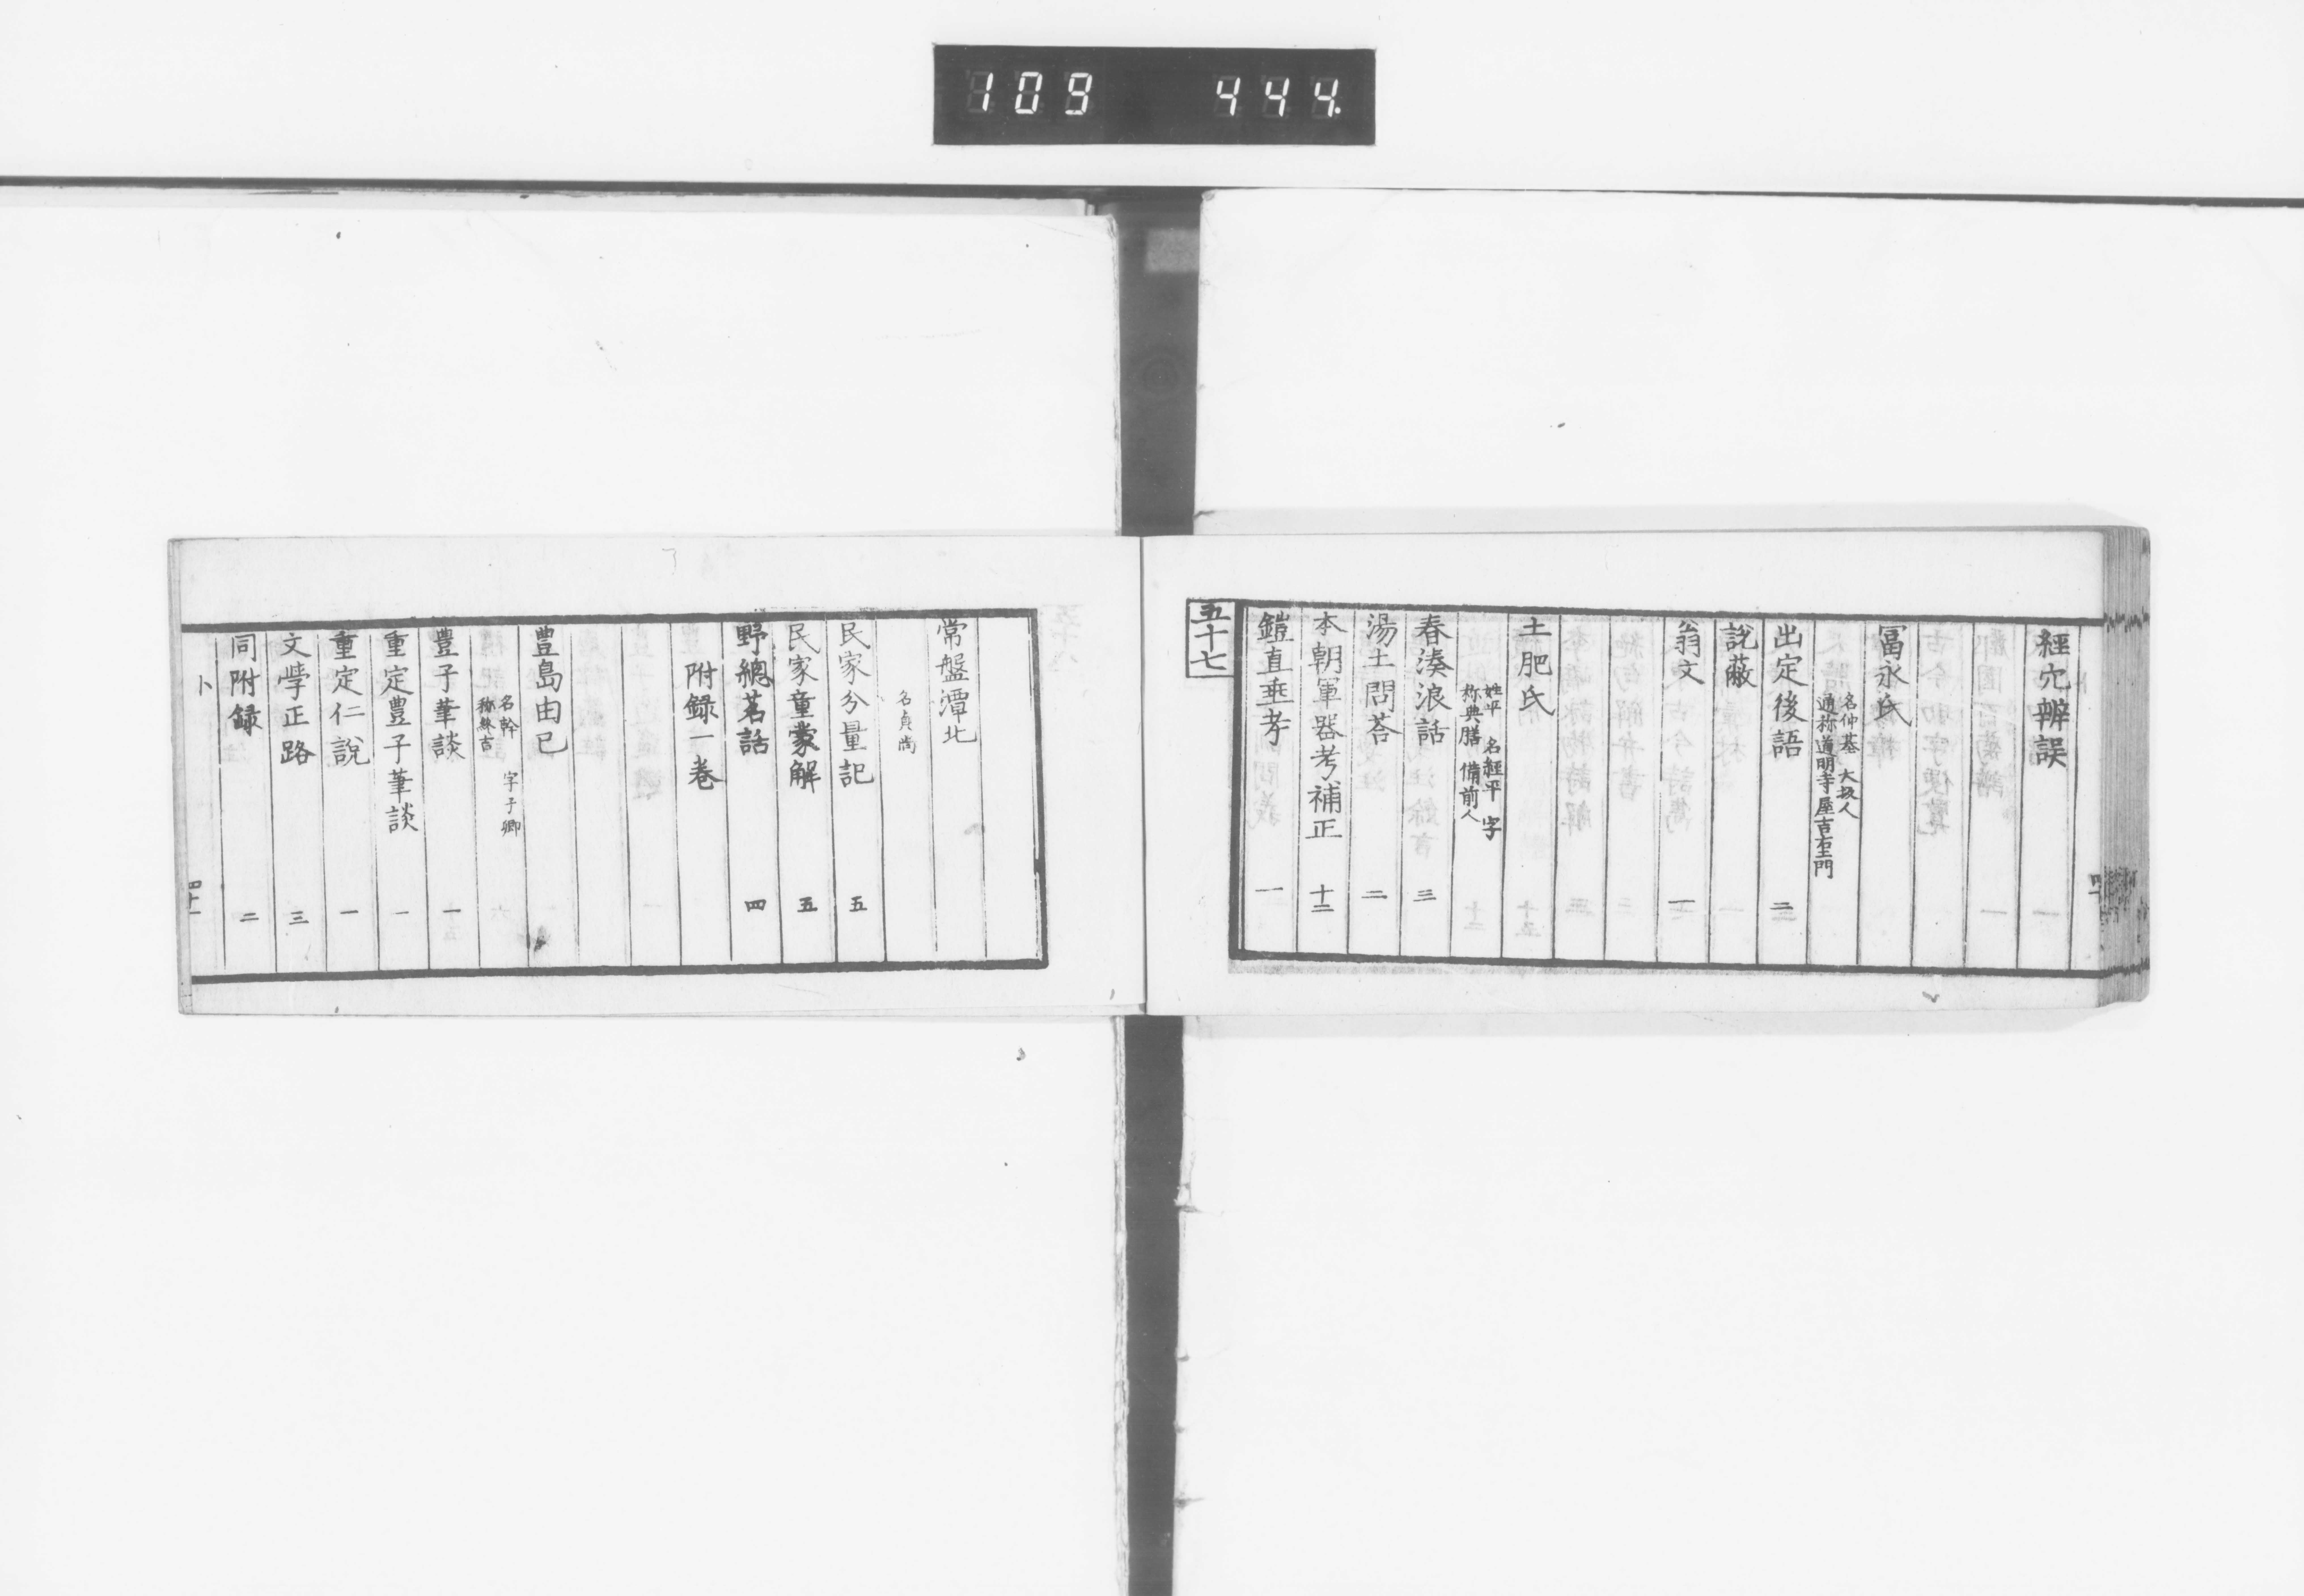 109 444.
經穴辨誤
冨永氏
名仲基 大坂人
通称道明寺屋吉右衛門
出定後語 二
說蔽
翁文 一
土肥氏
姓平 名經平 字
称典膳 備前人
春湊浪話 三
湯土問荅 二
本朝軍器考補正 十二
鎧直垂考 一
五十七
常盤潭北
名貞尚
民家分量記 五
民家童蒙解 五
野總茗話 四
附録一巻
豊島由己
名幹 字子卿
称終吉
豊子筆談 一
重定豊子筆談 一
重定仁說 一
文學正路 三
同附録 二
ト 四十一